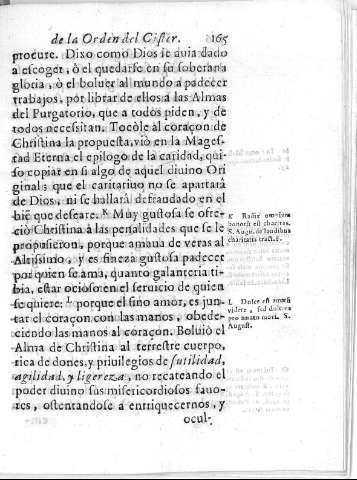 de la Orden del Cister. 165
procure. Dixo como Dios le auia dado
a escoger, ò el quedarse en su soberana
gloria, ò el boluer al mundo a padecer
trabajos, por librar de ellos a las Almas
del Purgatorio, que a todos piden, y de
todos necessitan. Tocòle al coraçon de
Christina la propuesta, viò en la Mages-
tad Eterna el epilogo de la caridad, qui-
so copiar en si algo de aquel diuino Ori
ginal; que el caritatiuo no se apartarà
de Dios, ni se hallarà defraudado en el
biẽ que deseare. K Muy gustosa se ofre-
ciò Christina à las penalidades que se le
propusieron, porque amaua de veras al
Altissimo, y es fineza gustosa padecer
por quien se ama, quanto galanteria ti-
bia, estar ocioso en el seruicio de quien
se quiere: L porque el fino amor, es jun-
tar el coraçon con las manos, obede-
ciendo las manos al coraçon. Boluiò el
Alma de Christina al terrestre cuerpo,
rica de dones, y priuilegios de sutilidad,
agilidad, y ligereza, no recateando el
poder diuino sus misericordiosos fauo-
res, ostentandose a enriquecernos, y
ocul-
K Radix omnium
bonorũ est charitas.
S. Aug. de laudibus
charitatis tract.
L Dulce est amorẽ
videre, sed
pro amato mori. S.
August.